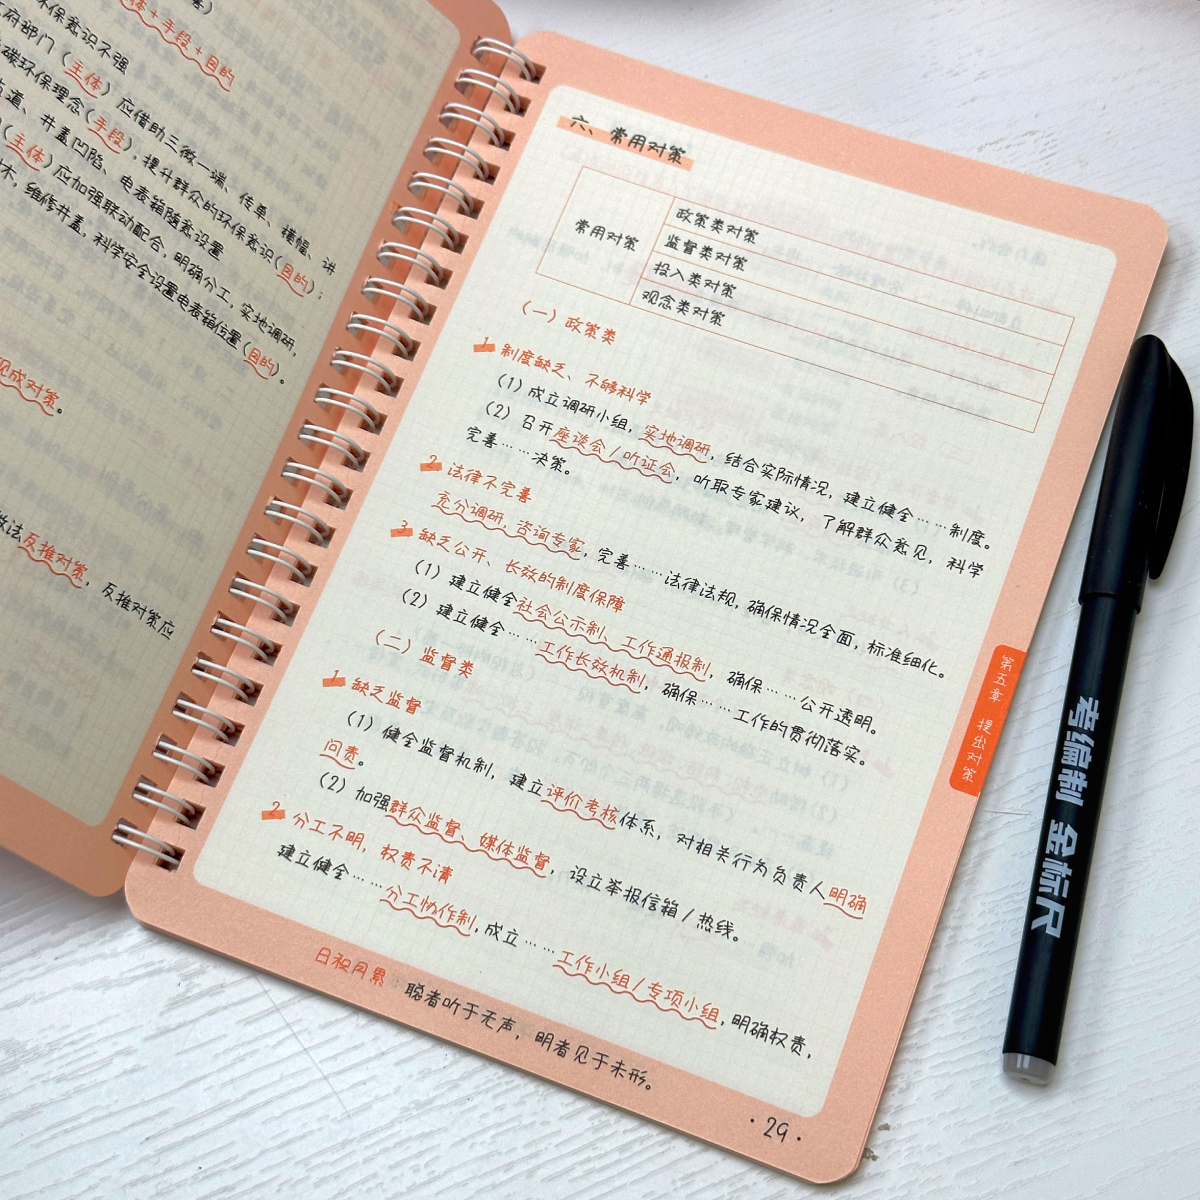 体＋手段＋目的
保意识不强
府部门（主体）应借助三微一端、传单、横幅、讲
碳环保理念（手段），提升群众的环保意识（目的）；
道、井盖凹陷、电表箱随意设置
（主体）应加强联动配合，明确分工，实地调研，
木，维修井盖，科学安全设置电表箱位置（目的）。
现成对策。
做法反推对策，反推对策应
六、常用对策
常用对策
政策类对策
监督类对策
投入类对策
观念类对策
（一）政策类
1 制度缺乏、不够科学
（1）成立调研小组，实地调研，结合实际情况，建立健全……制度。
（2）召开座谈会/听证会，听取专家建议，了解群众意见，科学
完善……决策。
2 法律不完善
充分调研，咨询专家，完善……法律法规，确保情况全面，标准细化。
3 缺乏公开、长效的制度保障
（1）建立健全社会公示制、工作通报制，确保……公开透明。
（2）建立健全……工作长效机制，确保……工作的贯彻落实。
（二）监督类
1 缺乏监督
（1）健全监督机制，建立评价考核体系，对相关行为负责人明确
问责。
（2）加强群众监督、媒体监督，设立举报信箱/热线。
2 分工不明，权责不清
建立健全……分工协作制，成立……工作小组/专项小组，明确权责，
日积月累：聪者听于无声，明者见于未形。
·29·
第五章 提出对策
考编制 金标尺